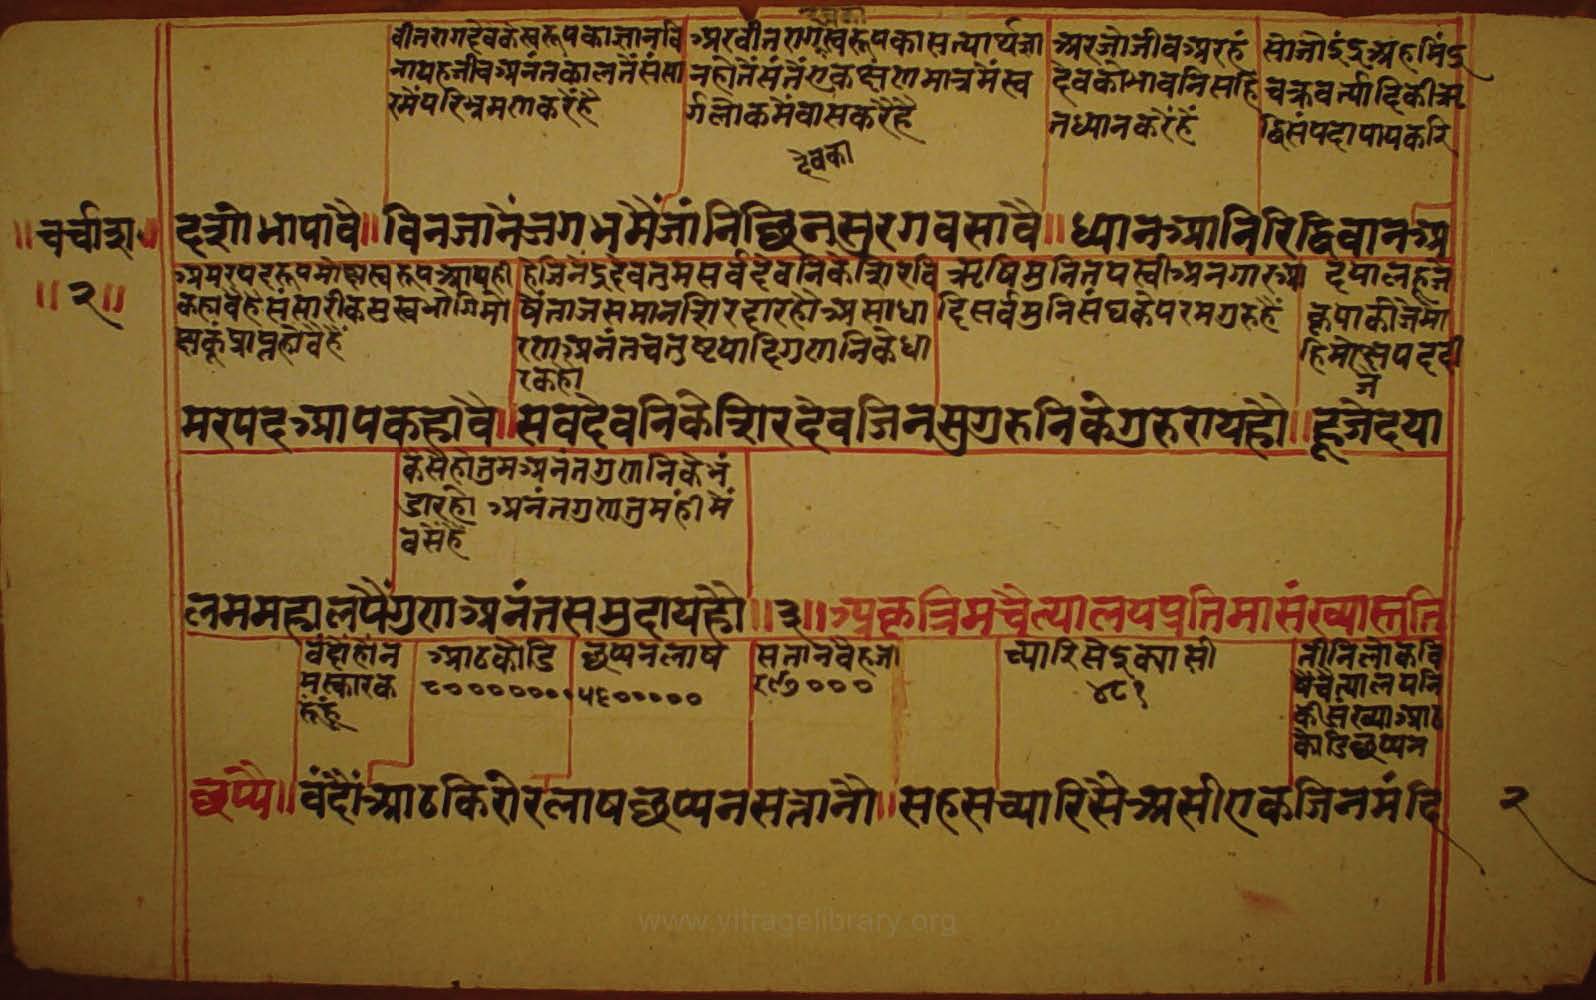 वीतरागदेवकेस्वरूपकाज्ञानवि
नायहजीवअनंतकालतैंसंसा
रमैंपरिभ्रमणकरैंहै
अरवीतरागस्वरूपकासत्यार्थज्ञा
नहोतैंसंतैंएकक्षंणमात्रमैंस्व
र्गलोकमैंवासकरैहै
देवका
अरजोजीवअरहं
देवकोभावनिसहि
तध्यानकरैंहैं
सोजोइंद्रअहमिंद्र
चक्रवर्त्यादिकीऋ
द्धिसंपदापायकरि
॥चर्चाश॰॥
दत्रीभापावै॥ विनजानैंजगभ्रमैंजांनिछिनसुरगवसावै॥ ध्यानआनिरिद्धिवानअ
॥२॥
अमरपदरूपमोक्षस्वरूपआपही
कहावैहैसंसारीकसुखभोगिमो
क्षकूंप्राप्तहोवैहैं
हेजिनेंद्रदेवतुमसर्वदेवनिकेशिरवि
षैताजसमानशिरदारहोअसाधा
रणअनंतचतुष्टयादिगुणनिकेधा
रकहो
ऋषिमुनितपस्वीअनगारआ
दिसर्वमुनिसंघकेपरमगुरुहैं
देयालहूजे
कृपाकीजेमो
हिमोक्षपददी
जे
मरपदआपकहावै॥ सवदेवनिकेशिरदेवजिनसुगुरुनिकेगुरुरायहौ॥ हूजेदया
कैसेहोतुमअनंतगुणनिकेभं
डारहो अनंतगुणतुमहीमैं
वसैंहैं
लममहालपैंगुणअनंतसमुदायहौ॥३॥ अकृत्रिमचैत्यालयप्रतिमासंख्यास्तुति
वंदोंहोंन
मस्कारक
रूंहूं
आठकोडि
८०००००००
छप्पनलाष
५६०००००
सतानवैहजा
र९७०००
च्यारिसेइक्यासी
४८१
तीनिलोकवि
षैचैत्यालयनि
कीसंख्याआठ
कोडिछप्पन
छप्पै॥ वंदौंआठकिरोरलाषछप्पनसत्तानौ॥ सहसच्यारिसैअसीएकजिनमंदि
२
www.vitragelibrary.org